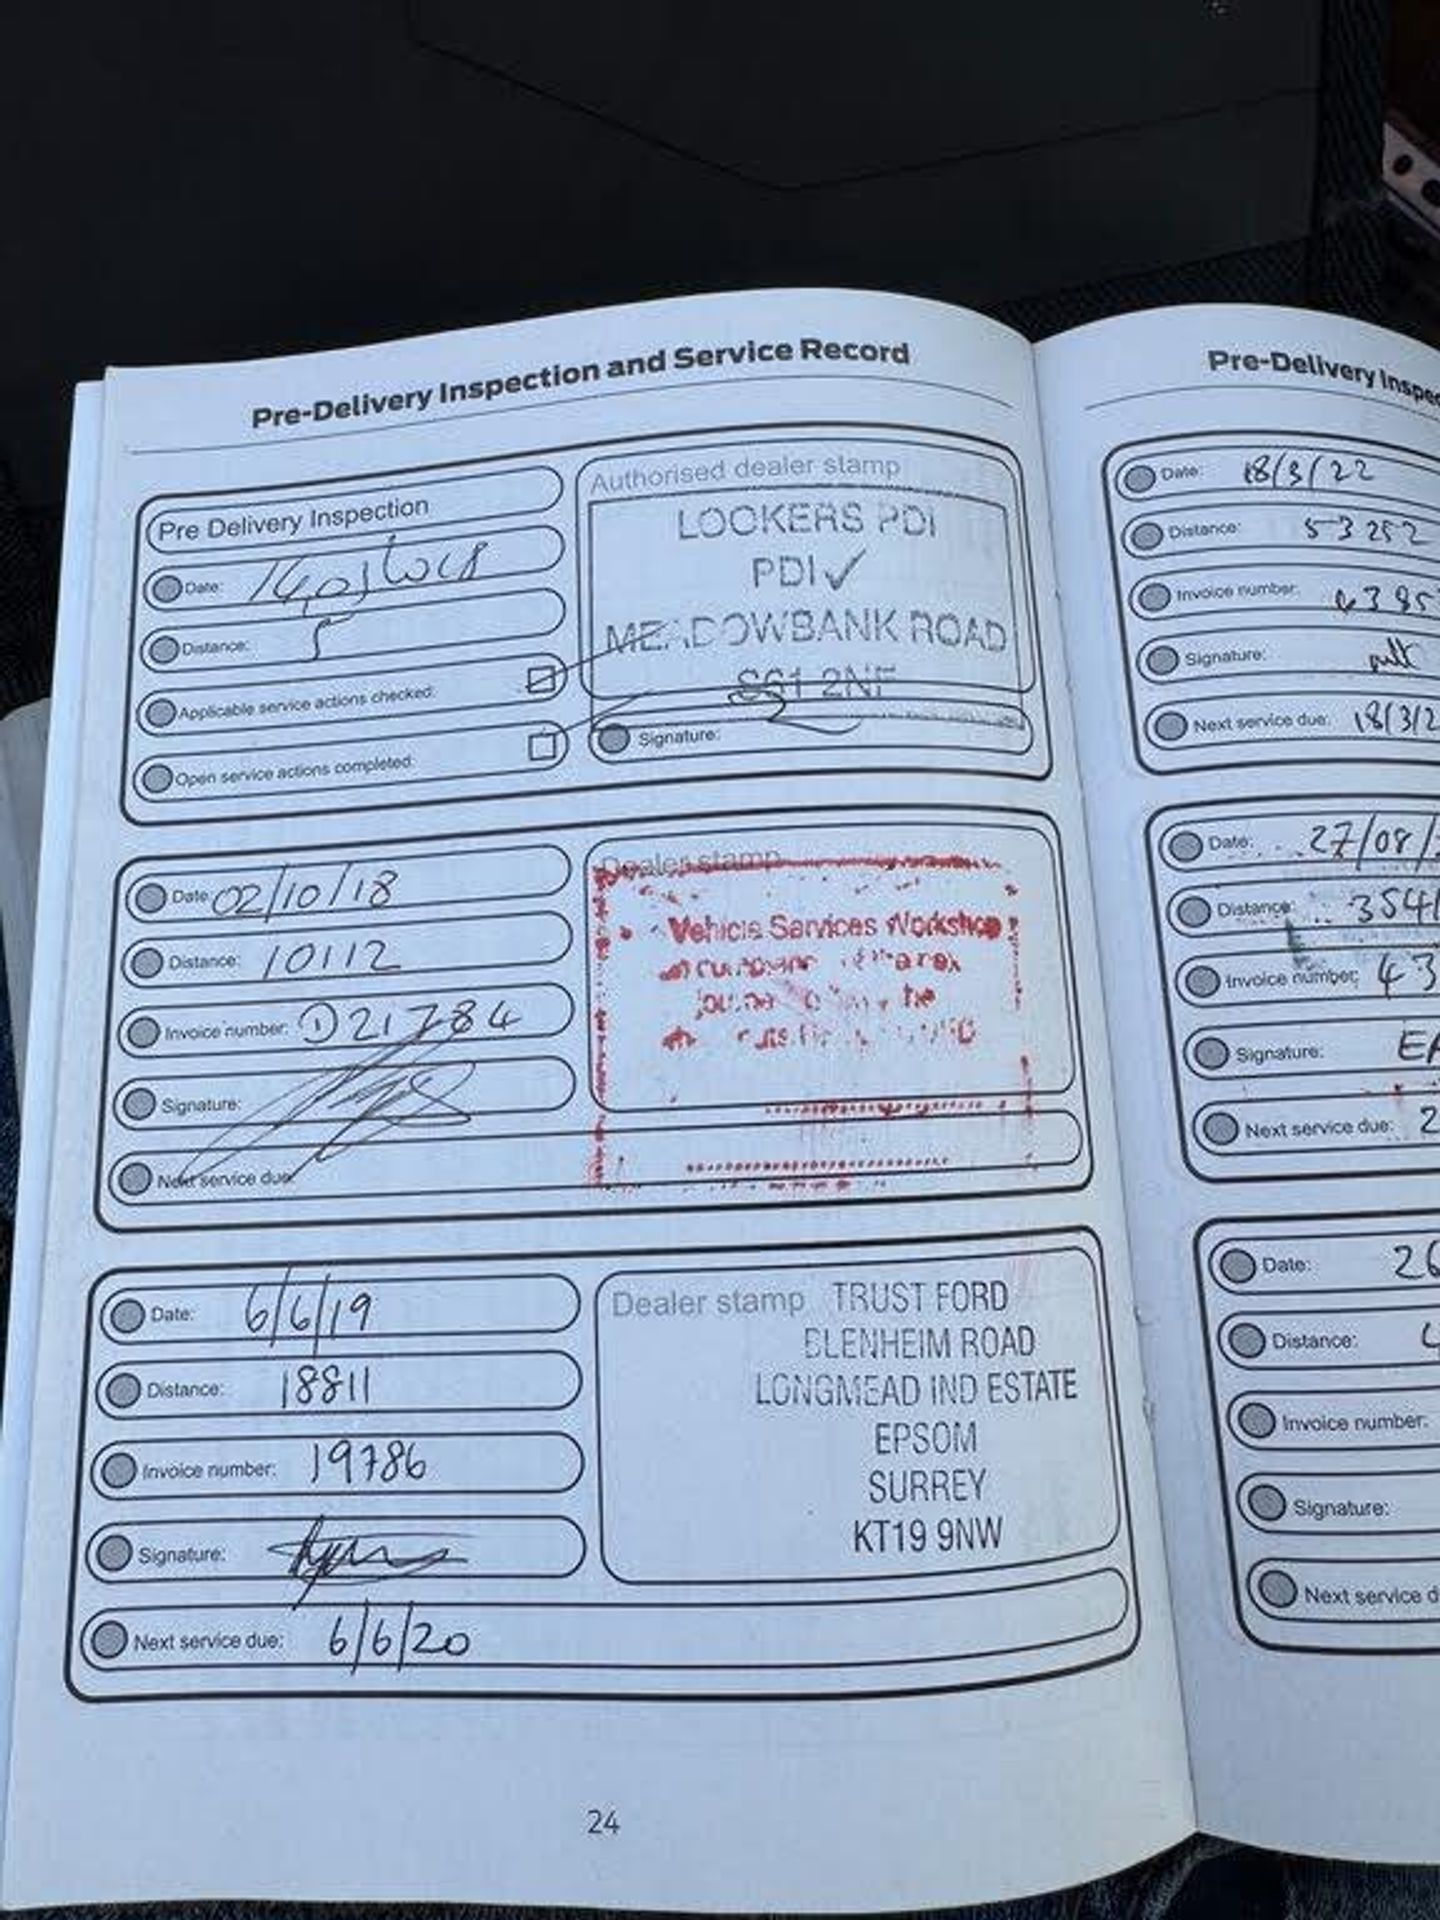 Pre-Delivery Inspection and Service Record
Pre Delivery Inspection
Date:
Distance: 5
Applicable service actions checked:
Open service actions completed:
Authorised dealer stamp
LOOKERS PDI
PDI✓
MEADOWBANK ROAD
S61 2NF
Signature:
Date: 02/10/18
Distance: 10112
Invoice number: 21784
Signature:
Next service due:
Dealer stamp
Vehicle Services Workshop
Date: 6/6/19
Distance: 18811
Invoice number: 19786
Signature:
Next service due: 6/6/20
Dealer stamp
TRUST FORD
BLENHEIM ROAD
LONGMEAD IND ESTATE
EPSOM
SURREY
KT19 9NW
24
Pre-Delivery Inspec
Date: 18/3/22
Distance: 53252
Invoice number:
Signature:
Next service due: 18/3/2
Date: 27/08/
Distance: 354
Invoice number: 43
Signature:
Next service due: 2
Date: 26
Distance: 4
Invoice number:
Signature:
Next service d